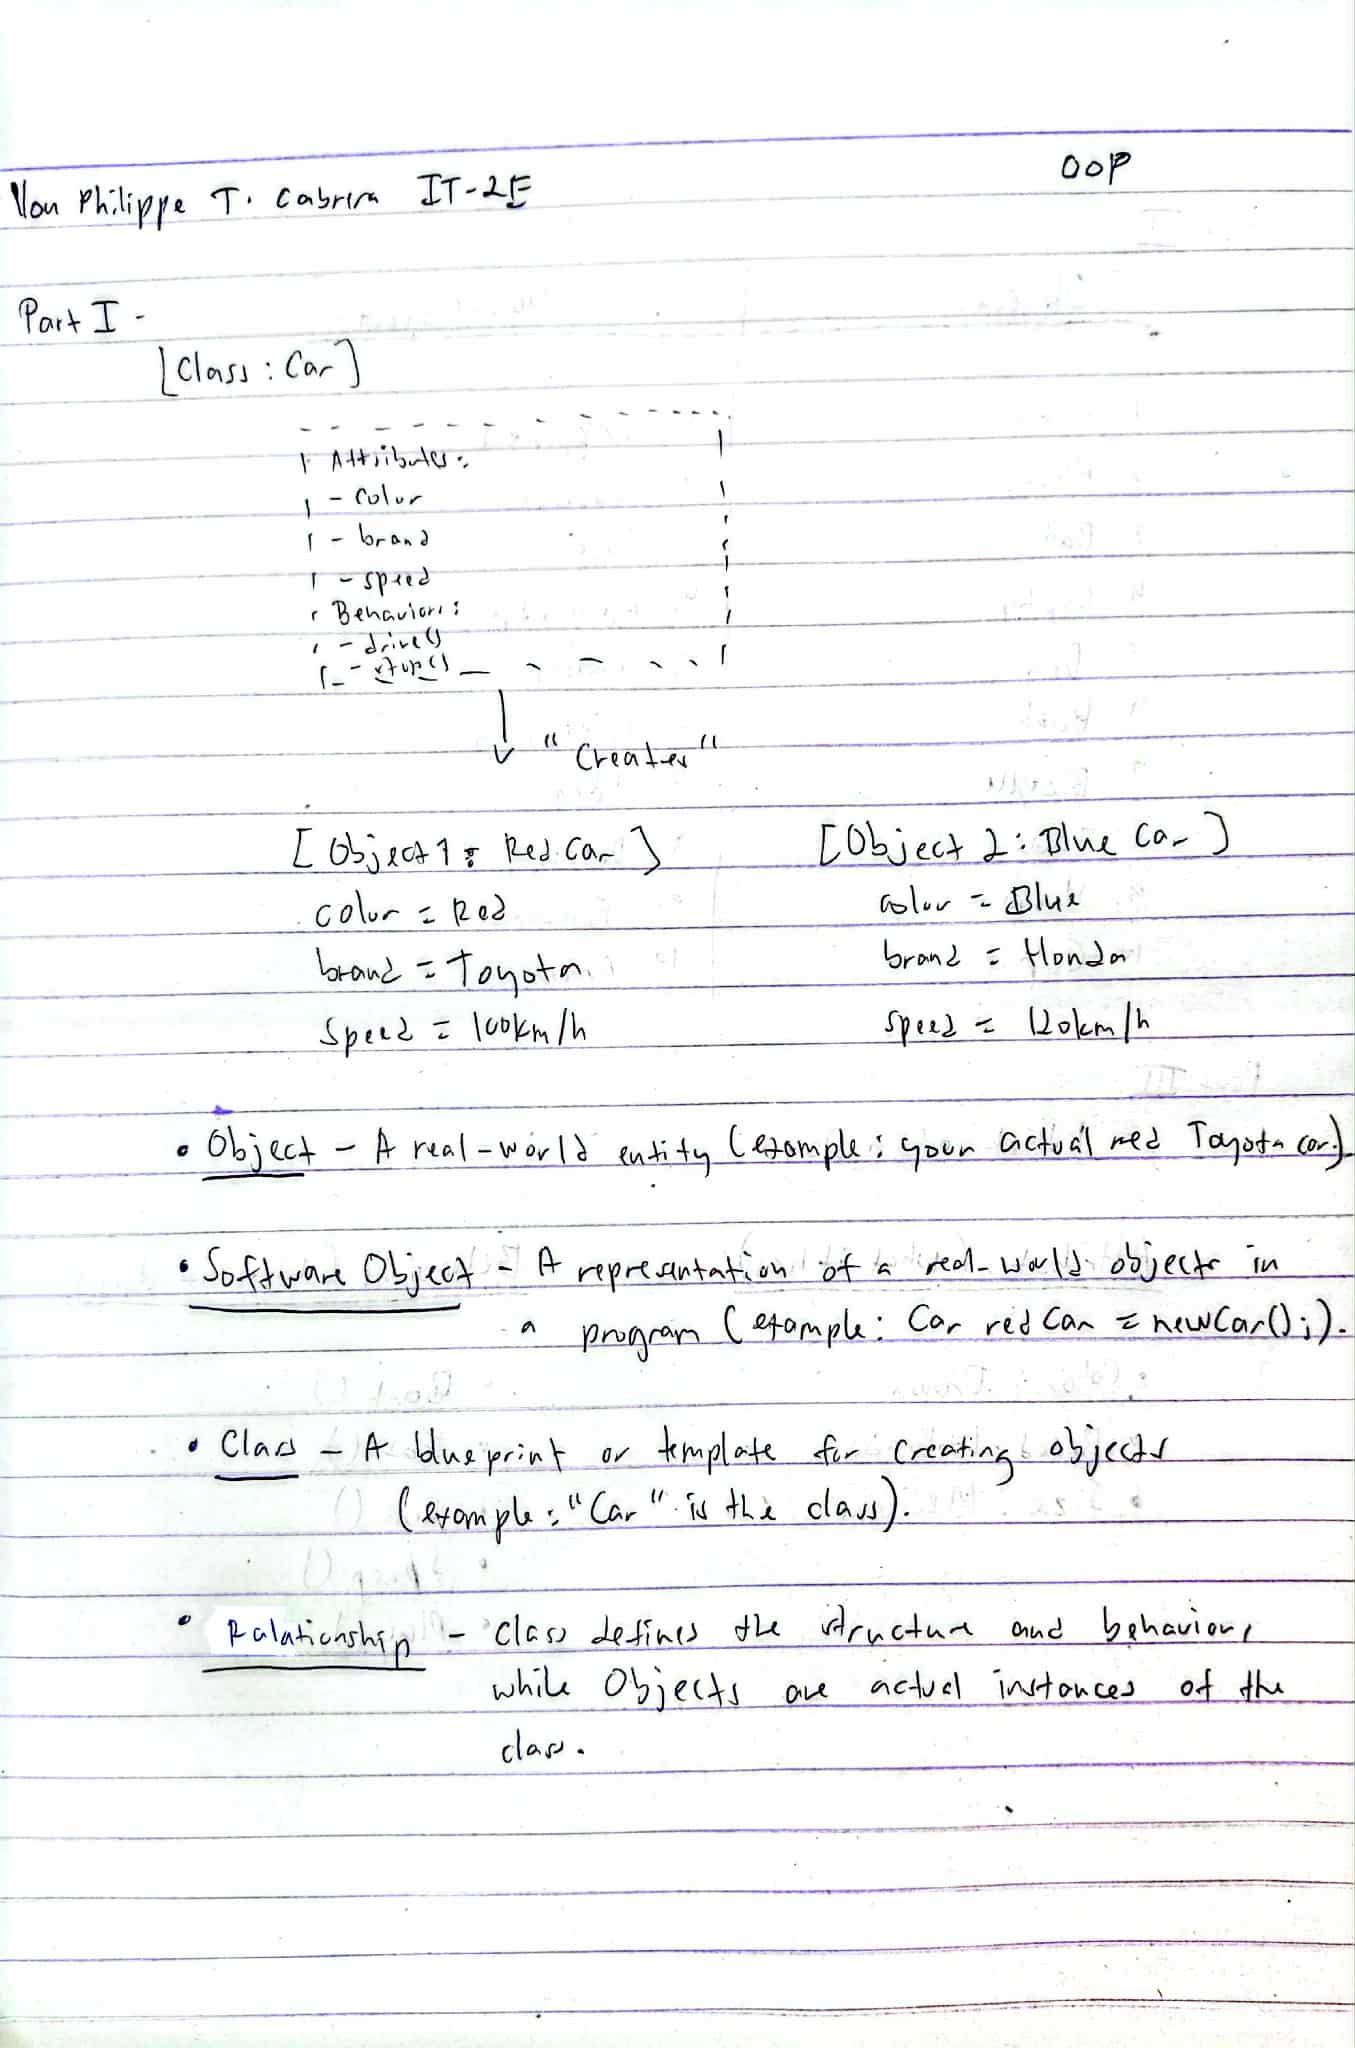 Von Philippe T. Cabrera IT-2E
OOP
Part I -
[Class: Car]
Attributes:
- color
- brand
- speed
Behaviors:
- drive()
- stop()
"Creates"
[Object 1: Red Car]
color = Red
brand = Toyota
Speed = 100km/h
[Object 2: Blue Car]
color = Blue
brand = Honda
speed = 120km/h
• Object - A real-world entity (example: your actual red Toyota car.)
• Software Object - A representation of a real-world objects in
a program (example: Car red Car = newCar();).
• Class - A blueprint or template for creating objects
(example: "Car" is the class).
• Ralationship - Class defines the structure and behavior,
while Objects are actual instances of the
class.